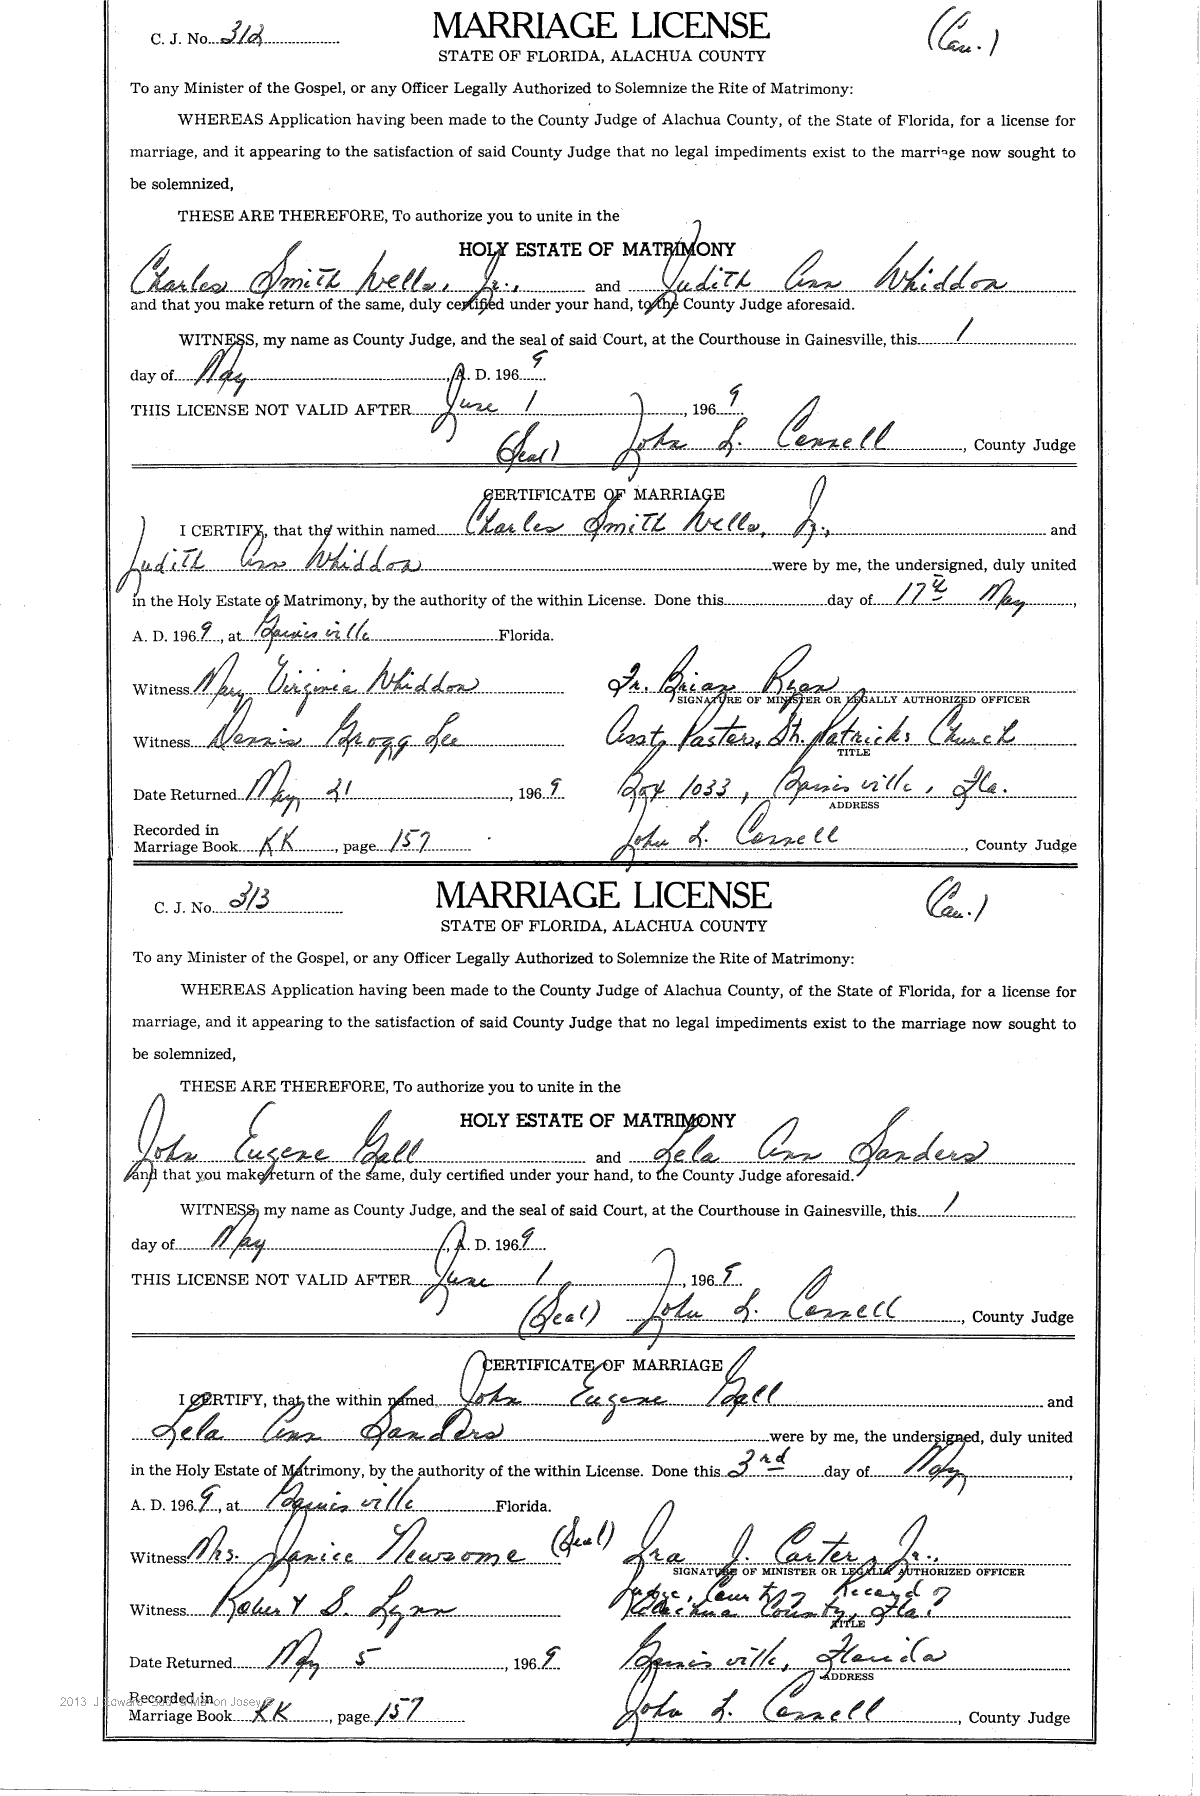 C. J. No. 312
MARRIAGE LICENSE
(Cau.)
STATE OF FLORIDA, ALACHUA COUNTY
To any Minister of the Gospel, or any Officer Legally Authorized to Solemnize the Rite of Matrimony:
WHEREAS Application having been made to the County Judge of Alachua County, of the State of Florida, for a license for
marriage, and it appearing to the satisfaction of said County Judge that no legal impediments exist to the marriage now sought to
be solemnized,
THESE ARE THEREFORE, To authorize you to unite in the
HOLY ESTATE OF MATRIMONY
Charles Smith Wells, Jr., and Judith Ann Whiddon
and that you make return of the same, duly certified under your hand, to the County Judge aforesaid.
WITNESS, my name as County Judge, and the seal of said Court, at the Courthouse in Gainesville, this 1
day of May, A. D. 1969
THIS LICENSE NOT VALID AFTER June 1, 1969
(Seal) John L. Connell, County Judge
CERTIFICATE OF MARRIAGE
I CERTIFY, that the within named Charles Smith Wells, Jr., and
Judith Ann Whiddon were by me, the undersigned, duly united
in the Holy Estate of Matrimony, by the authority of the within License. Done this day of 17th May,
A. D. 1969, at Gainesville Florida.
Witness Mary Virginia Whiddon Fr. Brian Ryan
SIGNATURE OF MINISTER OR LEGALLY AUTHORIZED OFFICER
Witness Dennis Grogg Lee Asst. Pastor, St. Patricks Church
TITLE
Date Returned May 21, 1969 Box 1033, Gainesville, Fla.
ADDRESS
Recorded in
Marriage Book KK, page 157 John L. Connell, County Judge
C. J. No. 313
MARRIAGE LICENSE
(Cau.)
STATE OF FLORIDA, ALACHUA COUNTY
To any Minister of the Gospel, or any Officer Legally Authorized to Solemnize the Rite of Matrimony:
WHEREAS Application having been made to the County Judge of Alachua County, of the State of Florida, for a license for
marriage, and it appearing to the satisfaction of said County Judge that no legal impediments exist to the marriage now sought to
be solemnized,
THESE ARE THEREFORE, To authorize you to unite in the
HOLY ESTATE OF MATRIMONY
John Eugene Gall and Lela Ann Sanders
and that you make return of the same, duly certified under your hand, to the County Judge aforesaid.
WITNESS, my name as County Judge, and the seal of said Court, at the Courthouse in Gainesville, this 1
day of May, A. D. 1969
THIS LICENSE NOT VALID AFTER June 1, 1969
(Seal) John L. Connell, County Judge
CERTIFICATE OF MARRIAGE
I CERTIFY, that the within named John Eugene Gall and
Lela Ann Sanders were by me, the undersigned, duly united
in the Holy Estate of Matrimony, by the authority of the within License. Done this 3rd day of May,
A. D. 1969, at Gainesville Florida.
Witness Mrs. Janice Newsome (Seal) Ira J. Carter, Jr.,
SIGNATURE OF MINISTER OR LEGALLY AUTHORIZED OFFICER
Judge, Court of Record of
Witness Robert S. Lynn Alachua County, Fla.
TITLE
Date Returned May 5, 1969 Gainesville, Florida
ADDRESS
Recorded in
Marriage Book KK, page 157 John L. Connell, County Judge
2013 J Edward